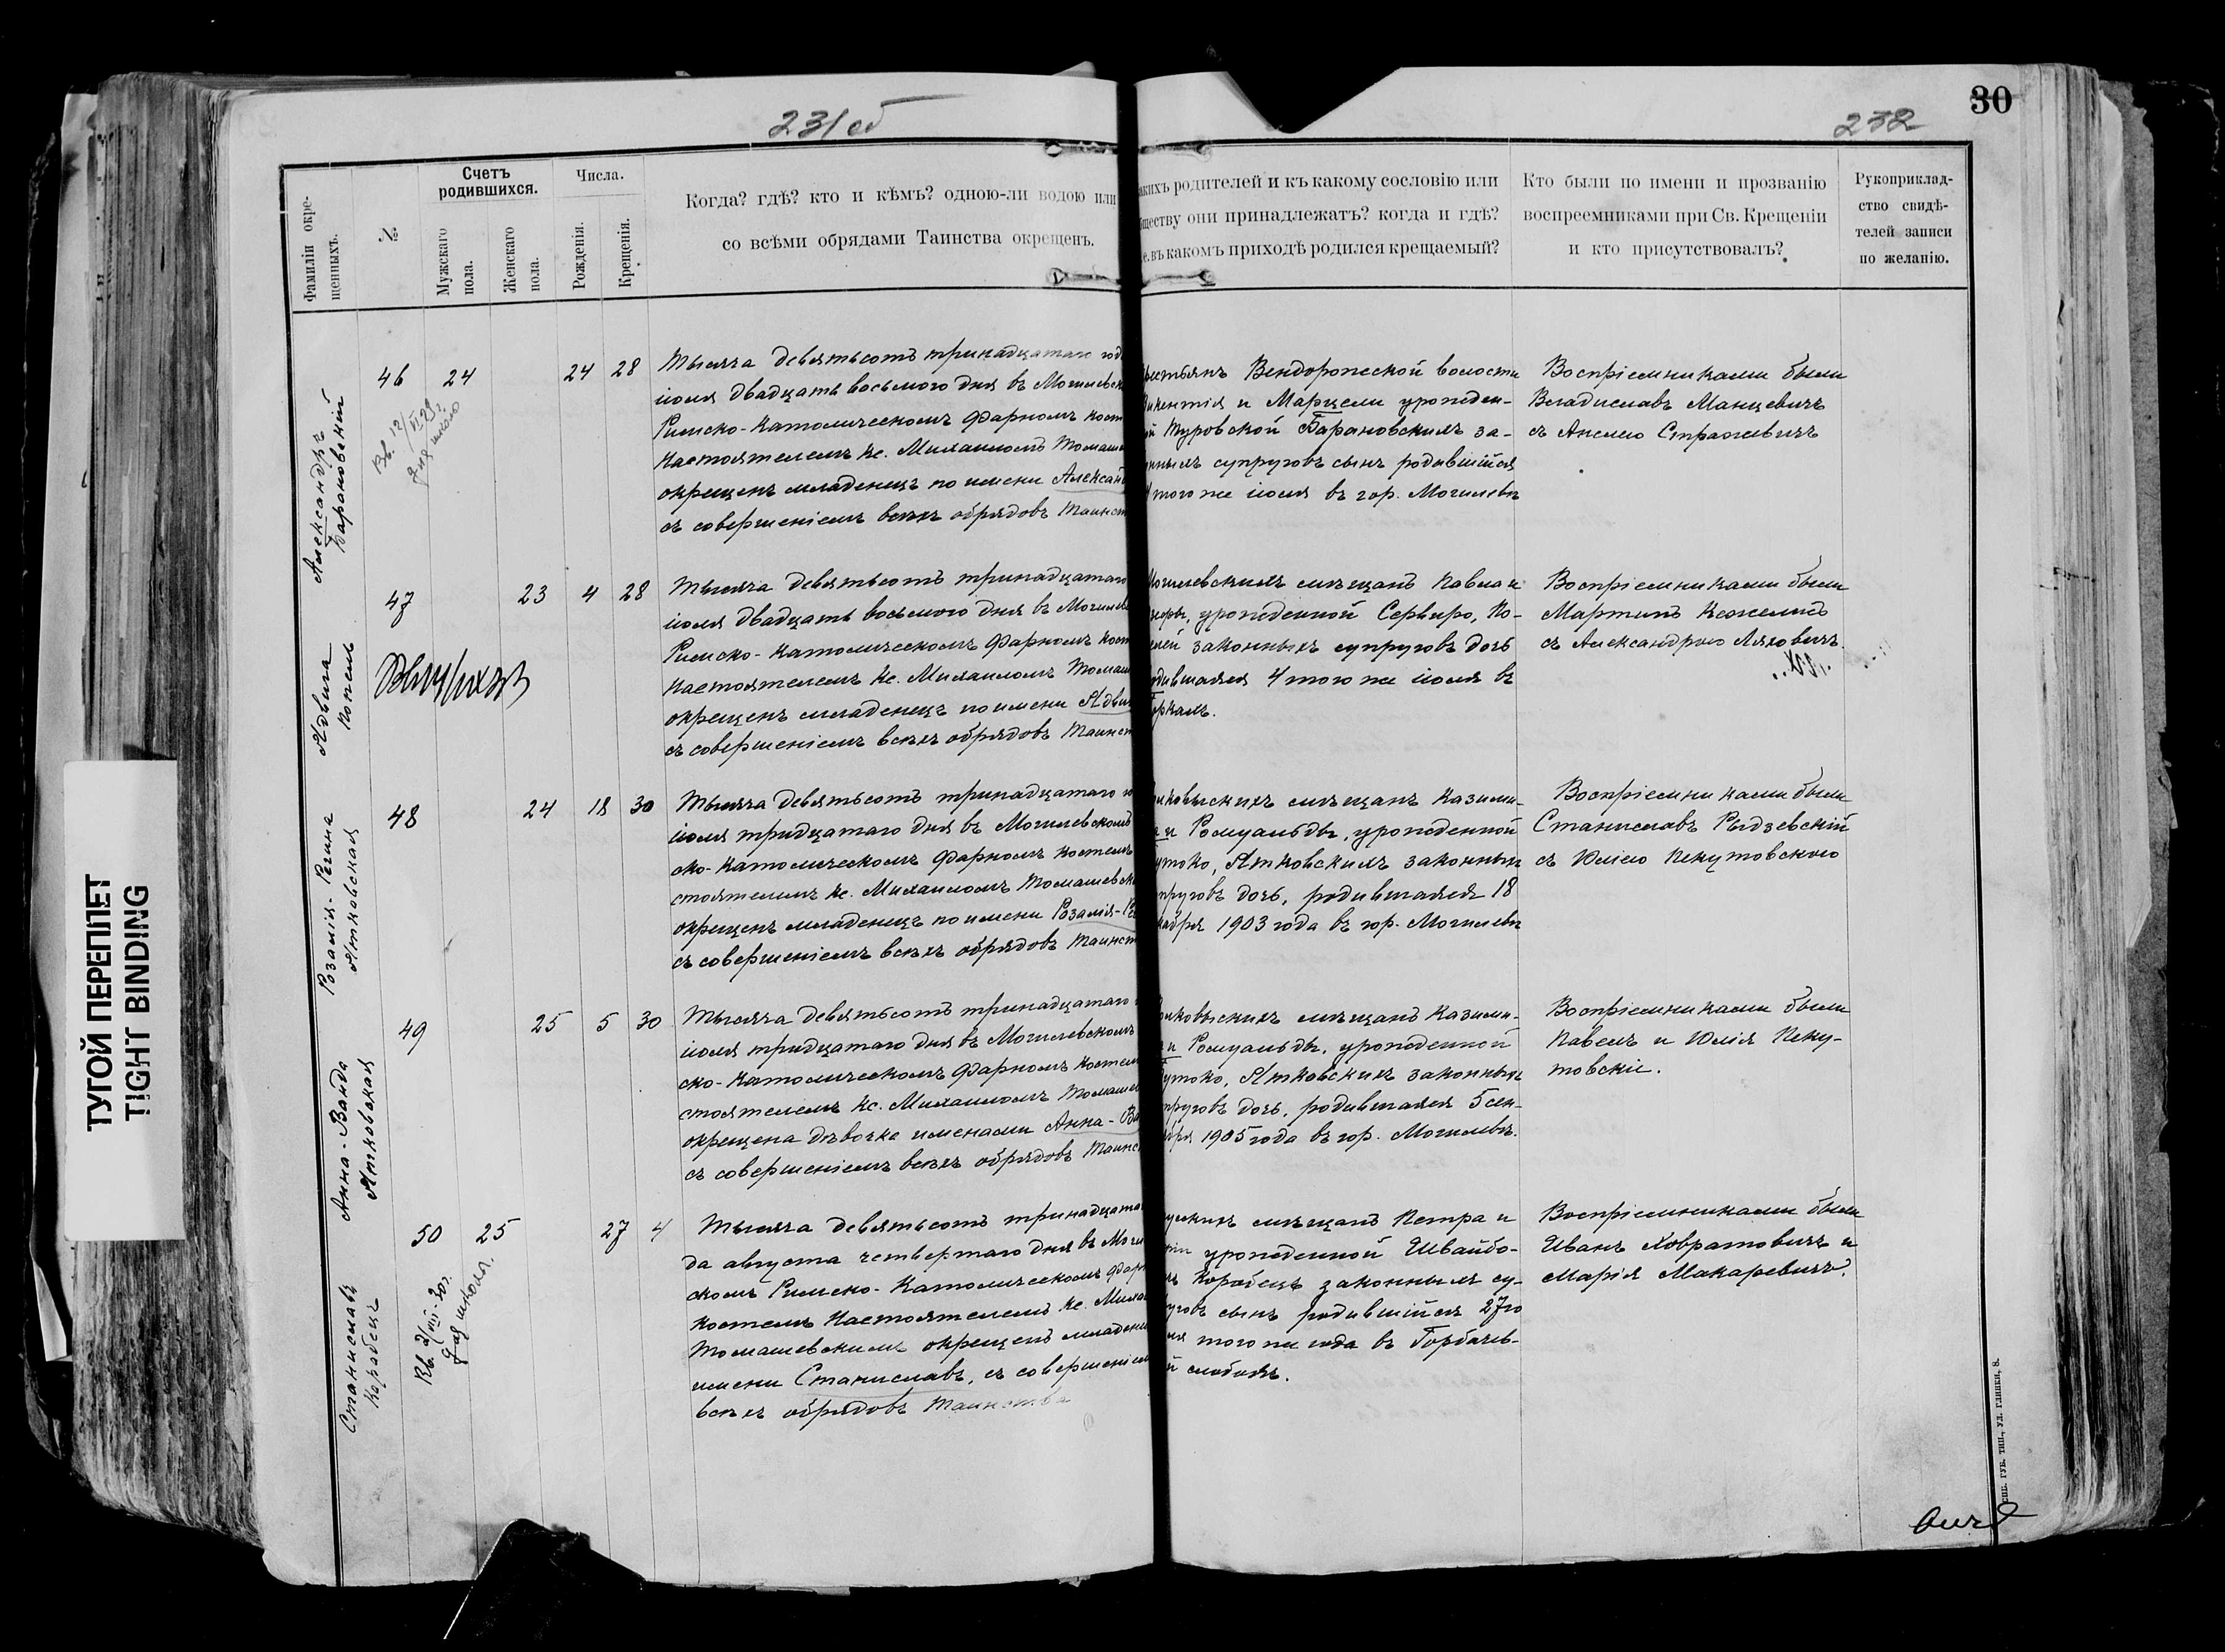 30
231 об
232
Фамиліи окре-
щенныхъ.
№
Счетъ
родившихся.
Мужскаго
пола.
Женскаго
пола.
Числа.
Рожденія.
Крещенія.
Когда? гдѣ? кто и кѣмъ? одною-ли водою или
со всѣми обрядами Таинства окрещенъ.
акихъ родителей и къ какому сословію или
ществу они принадлежатъ? когда и гдѣ?
е. въ какомъ приходѣ родился крещаемый?
Кто были по имени и прозванію
воспреемниками при Св. Крещеніи
и кто присутствовалъ?
Рукоприклад-
ство свидѣ-
телей записи
по желанію.
Александръ
Барановскій
46 24 24 28
Кв. 12/VI 23 г.
для школы
Тысяча девятьсотъ тринадцатаго год
іюля двадцать восьмого дня въ Могилевск
Римско-Католическомъ Фарномъ кост
Настоятелемъ Кс. Михаиломъ Томаше
окрещенъ младенецъ по имени Александ
съ совершеніемъ всѣхъ обрядовъ Таинст
рестьянъ Вендорожской волости
икентія и Марцели урожден-
й Туровской Барановскихъ за-
нныхъ супруговъ сынъ родившійся
того же іюля въ гор. Могилевѣ
Воспріемниками были
Владиславъ Манцевичъ
съ Анелею Стражевичъ
Ядвига
Копель
47 23 4 28
Тысяча девятьсотъ тринадцатаго
іюля двадцать восьмого дня въ Могилев
Римско-Католическомъ Фарномъ кост
Настоятелемъ Кс. Михаиломъ Томаш
окрещенъ младенецъ по имени Ядви
съ совершеніемъ всѣхъ обрядовъ Таинст
Могилевскихъ мѣщанъ Павла и
урожденной Сервиро, Ко-
лей законныхъ супруговъ дочь
одившаяся 4 того же іюля въ
оркахъ.
Воспріемниками были
Мартинъ
съ Александрою Ляховичъ.
Розалія-Регина
Ятковская
48 24 18 30
Тысяча девятьсотъ тринадцатаго го
іюля тридцатаго дня въ Могилевскомъ
ско-Католическомъ Фарномъ костелѣ
стоятелемъ Кс. Михаиломъ Томашевск
окрещенъ младенецъ по имени Розалія-Ре
съ совершеніемъ всѣхъ обрядовъ Таинст
лковыскихъ мѣщанъ Казими-
а и Ромуальды, урожденной
утоко, Ятковскихъ законныхъ
пруговъ дочь, родившаяся 18
кабря 1903 года въ гор. Могилевѣ
Воспріемниками были
Станиславъ Рыдзевскій
съ Юліею Пекутовскою
Анна-Ванда
Ятковская
49 25 5 30
Тысяча девятьсотъ тринадцатаго
іюля тридцатаго дня въ Могилевскомъ
ско-Католическомъ Фарномъ костел
стоятелемъ Кс. Михаиломъ Томашев
окрещена дѣвочка именами Анна-Ва
съ совершеніемъ всѣхъ обрядовъ Таинст
олковыскихъ мѣщанъ Казими-
а и Ромуальды, урожденной
утоко, Ятковскихъ законныхъ
пруговъ дочь, родившаяся 5 сен-
ября 1905 года въ гор. Могилевѣ.
Воспріемниками были
Павелъ и Юлія Пеку-
товскіе.
Станиславъ
Карабецъ
50 25 27 4
Кв. 2/VII-20 г.
для школы.
Тысяча девятьсотъ тринадцата
да августа четвертаго дня въ Моги
скомъ Римско-Католическомъ Фар
костелѣ Настоятелемъ Кс. Миха
Томашевскимъ окрещенъ младене
имени Станиславъ, съ совершеніем
всѣхъ обрядовъ Таинства
мѣщанъ Петра и
урожденной Швайбо-
Коробецъ законныхъ су-
уговъ сынъ родившійся 27го
ля того же года въ Горбачев-
й слободѣ.
Воспріемниками были
Иванъ Ховратовичъ и
Марія Макаревичъ.
ТУГОЙ ПЕРЕПЛЕТ
TIGHT BINDING
СПБ. ГУБ. ТИП., УЛ. ГЛИНКИ, 8.